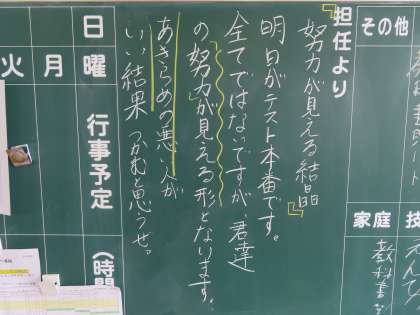 その他
家庭
技
教科書
担任より
『努力が見える結晶』
明日がテスト本番です。
全てではないですが、君達
の努力が見える形となります。
あきらめの悪い人が
いい結果つかむと思うぜ。
行事予定
(時間
日
曜
月
火